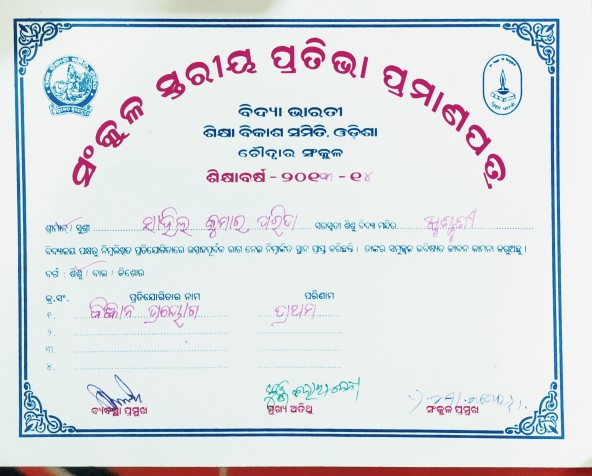 ସଂକୁଳ ସ୍ତରୀୟ ପ୍ରତିଭା ପ୍ରମାଣପତ୍ର
ବିଦ୍ୟା ଭାରତୀ
ଶିକ୍ଷା ବିକାଶ ସମିତି, ଓଡ଼ିଶା
ଚୌଦ୍ୱାର ସଂକୁଳ
ଶିକ୍ଷାବର୍ଷ - ୨୦୧୩ - ୧୪
ଶ୍ରୀମାନ୍/ ସୁଶ୍ରୀ ସାହିଲ କୁମାର ପରିଡା ସରସ୍ୱତୀ ଶିଶୁ ବିଦ୍ୟା ମନ୍ଦିର
ବିଦ୍ୟାଳୟ ପକ୍ଷରୁ ନିମ୍ନଲିଖିତ ପ୍ରତିଯୋଗିତାରେ ଭାଗ ନେଇ ନିମ୍ନାଙ୍କିତ ସ୍ଥାନ ପ୍ରାପ୍ତ କରିଛନ୍ତି । ତାଙ୍କର ସମୁଜ୍ଜ୍ୱଳ ଭବିଷ୍ୟତ ଜୀବନ କାମନା କରୁଅଛୁ ।
ବର୍ଗ : ଶିଶୁ / ବାଳ / କିଶୋର
କ୍ର.ସଂ. ପ୍ରତିଯୋଗିତାର ନାମ ପରିଣାମ
୧. ବିଜ୍ଞାନ ପ୍ରୟୋଗ ପ୍ରଥମ
୨.
୩.
୪.
ବ୍ୟବସ୍ଥା ପ୍ରମୁଖ ମୁଖ୍ୟ ଅତିଥି ସଂକୁଳ ପ୍ରମୁଖ